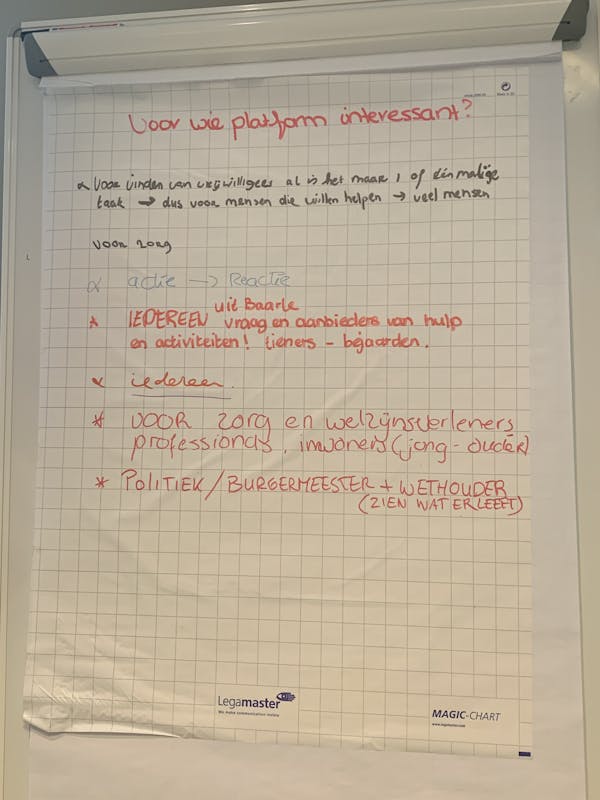 Voor wie platform interessant?
Voor vinden van vrijwilligers al is het maar 1 of éénmalige
taak → dus voor mensen die willen helpen → veel mensen
voor zorg
actie → Reactie
uit Baarle
* IEDEREEN vraag en aanbieders van hulp
en activiteiten! tieners - bejaarden.
iedereen.
* VOOR zorg en welzijnsverleners
professionals, inwoners (jong - ouder)
* POLITIEK / BURGERMEESTER + WETHOUDER
(ZIEN WAT ER LEEFT)
Legamaster
We make communication visible
MAGIC-CHART
www.legamaster.com